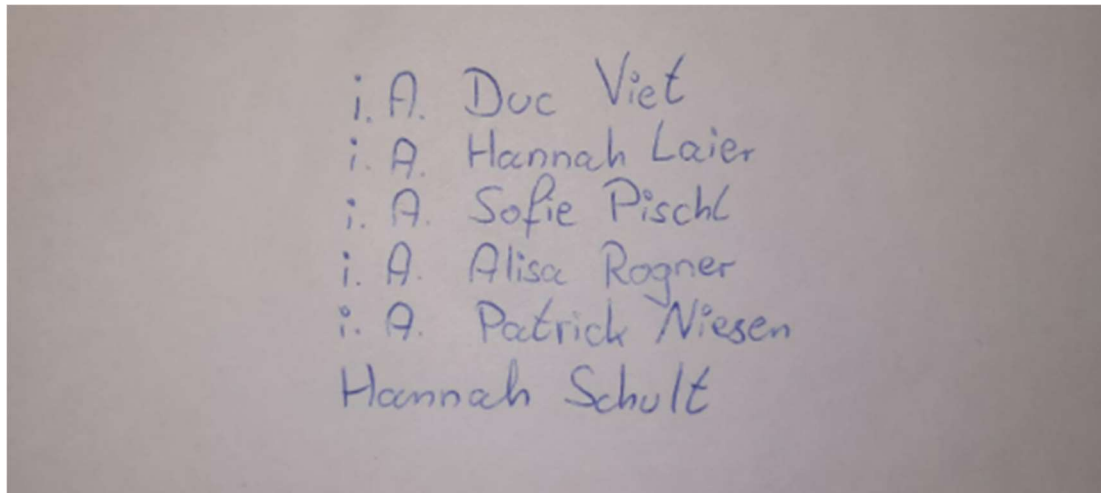 i. A. Duc Viet
i. A. Hannah Laier
i. A. Sofie Pischl
i. A. Alisa Rogner
i. A. Patrick Niesen
Hannah Schult